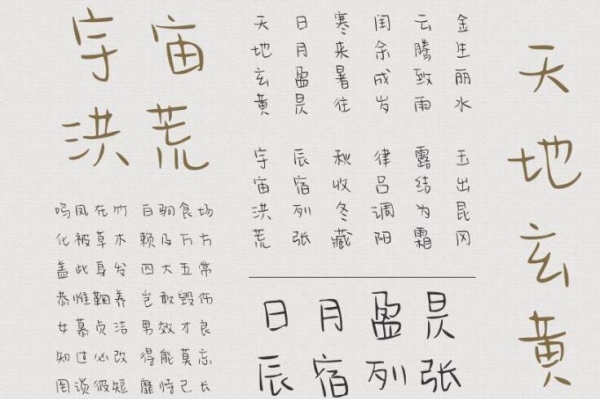 宇宙
洪荒
鸣凤在竹 白驹食场
化被草木 赖及万方
盖此身发 四大五常
恭惟鞠养 岂敢毁伤
女慕贞洁 男效才良
知过必改 得能莫忘
罔谈彼短 靡恃己长
天地玄黄 宇宙洪荒
日月盈昃 辰宿列张
寒来暑往 秋收冬藏
闰余成岁 律吕调阳
云腾致雨 露结为霜
金生丽水 玉出昆冈
日月盈昃
辰宿列张
天地玄黄